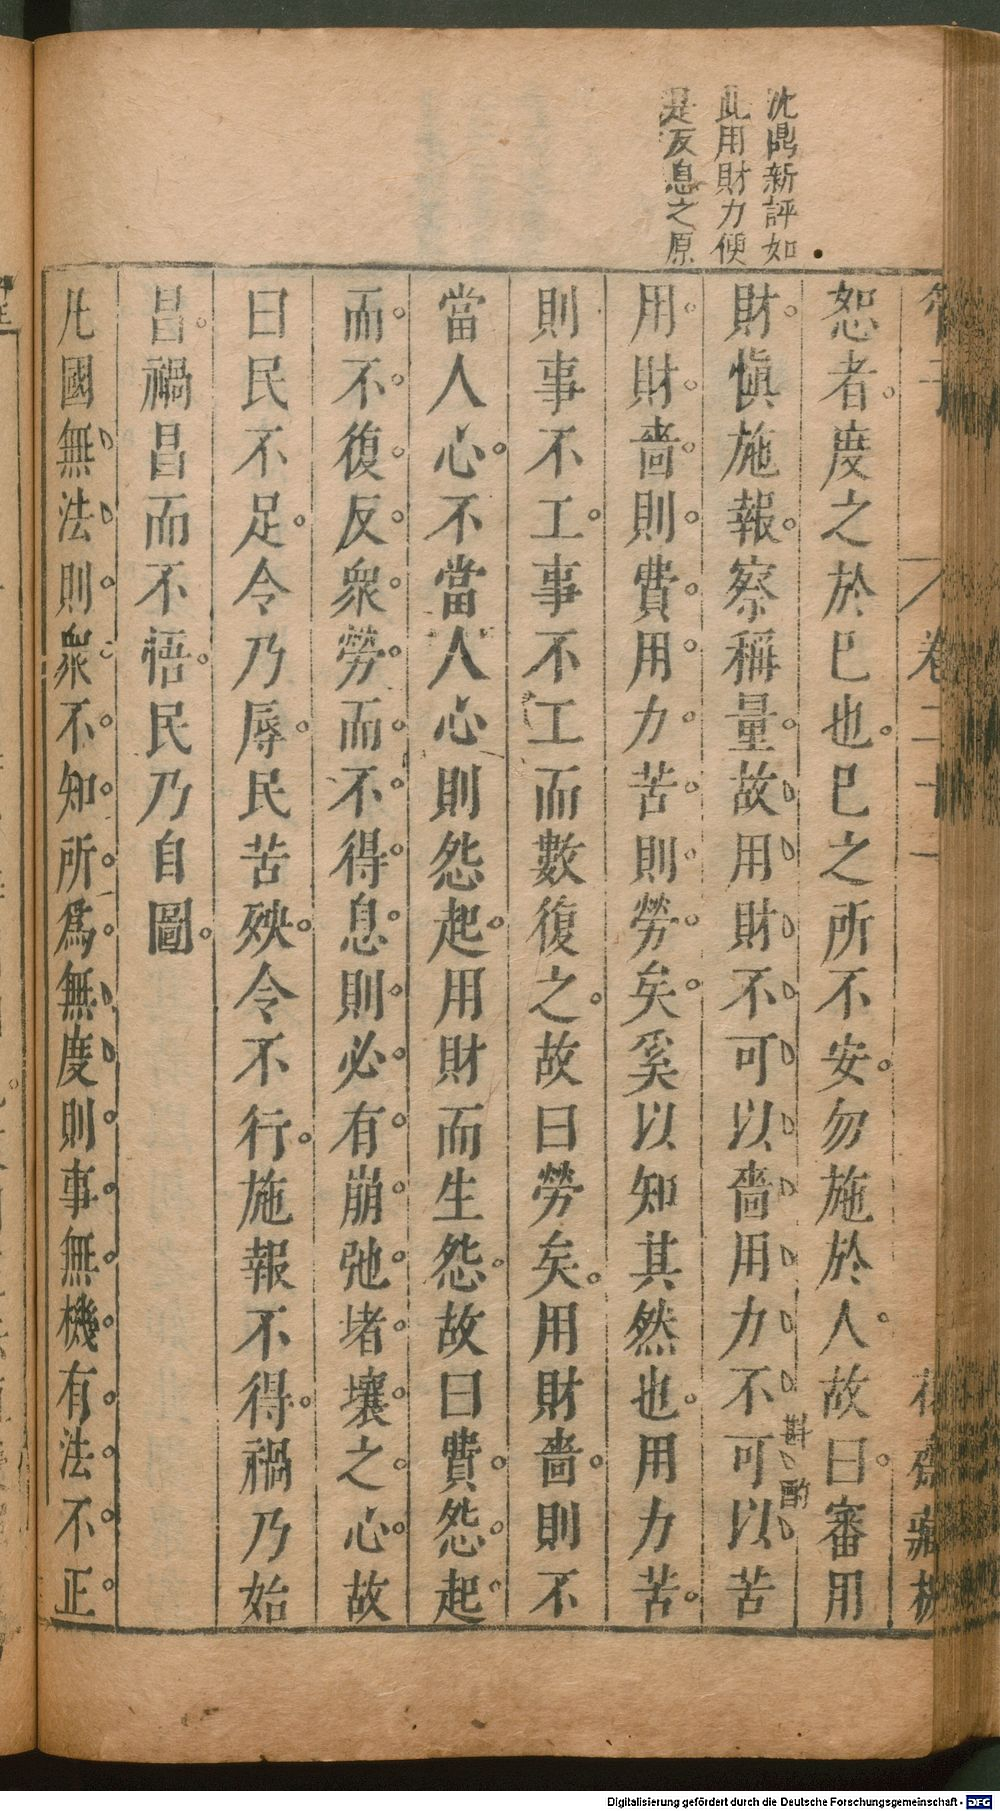 沈鼎新評如
此用財力便
是反息之原
管子
卷二十一
花齋藏板
恕者。度之於已也。已之所不安。勿施於人。故曰。審用
財。慎施報。察稱量。故用財不可以嗇用力不可以苦
斟酌
用。財。嗇。則。費。用。力。苦。則。勞。矣。奚以知其然也。用力苦。
則事不工。事不工而數復之。故曰勞矣。用財嗇。則不
當人心。不當人心則怨起。用財而生怨。故曰費。怨。起。
而。不。復。反。衆。勞。而。不。得。息。則。必。有。崩。弛。堵。壞。之。心。故
曰民不足。令乃辱。民苦殃。令不行。施報不得。禍乃始
昌。禍昌而不悟。民乃自圖。
凡國無法則。衆。不。知。所。爲。無度則。事。無。機。有。法。不。正。
Digitalisierung gefördert durch die Deutsche Forschungsgemeinschaft - DFG